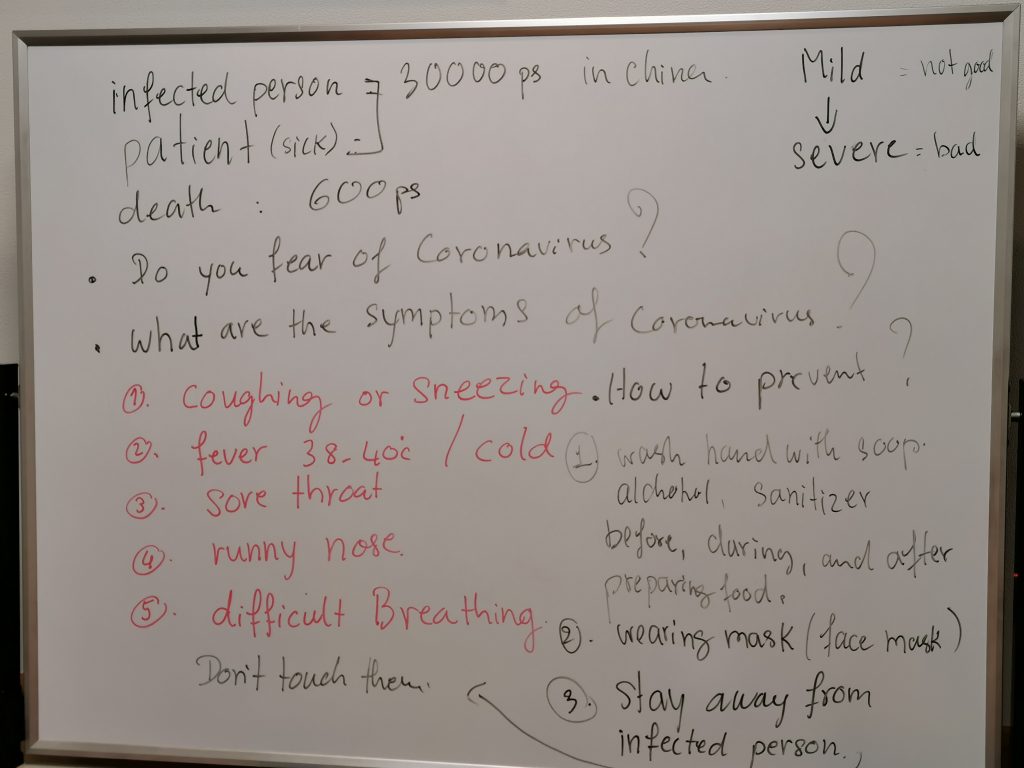 infected person = 30000 ps in china.
patient (sick) =
death : 600 ps
Mild = not good
↓
severe = bad
• Do you fear of Coronavirus ?
• What are the symptoms of Coronavirus ?
①. Coughing or Sneezing
②. fever 38-40c / cold
③. Sore throat
④. runny nose.
⑤. difficult Breathing.
Don't touch them.
• How to prevent ?
①. wash hand with soop.
alchohol, sanitizer
before, during, and after
preparing food.
②. wearing mask (face mask)
③. Stay away from
infected person.,